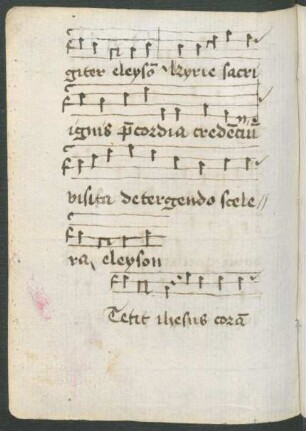 giter eleysō Kyrie sacri
ignis p̄cordia credēciū
visita detergendo scele //
ra eleyson
Tetit ihesus corā